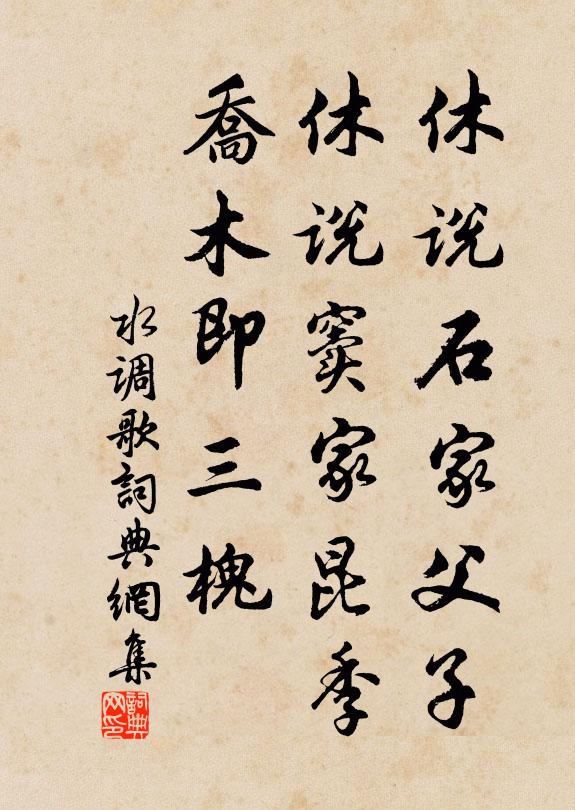 休说石家父子
休说窦家昆季
喬木即三槐
水调歌詞典網集
詞典网印